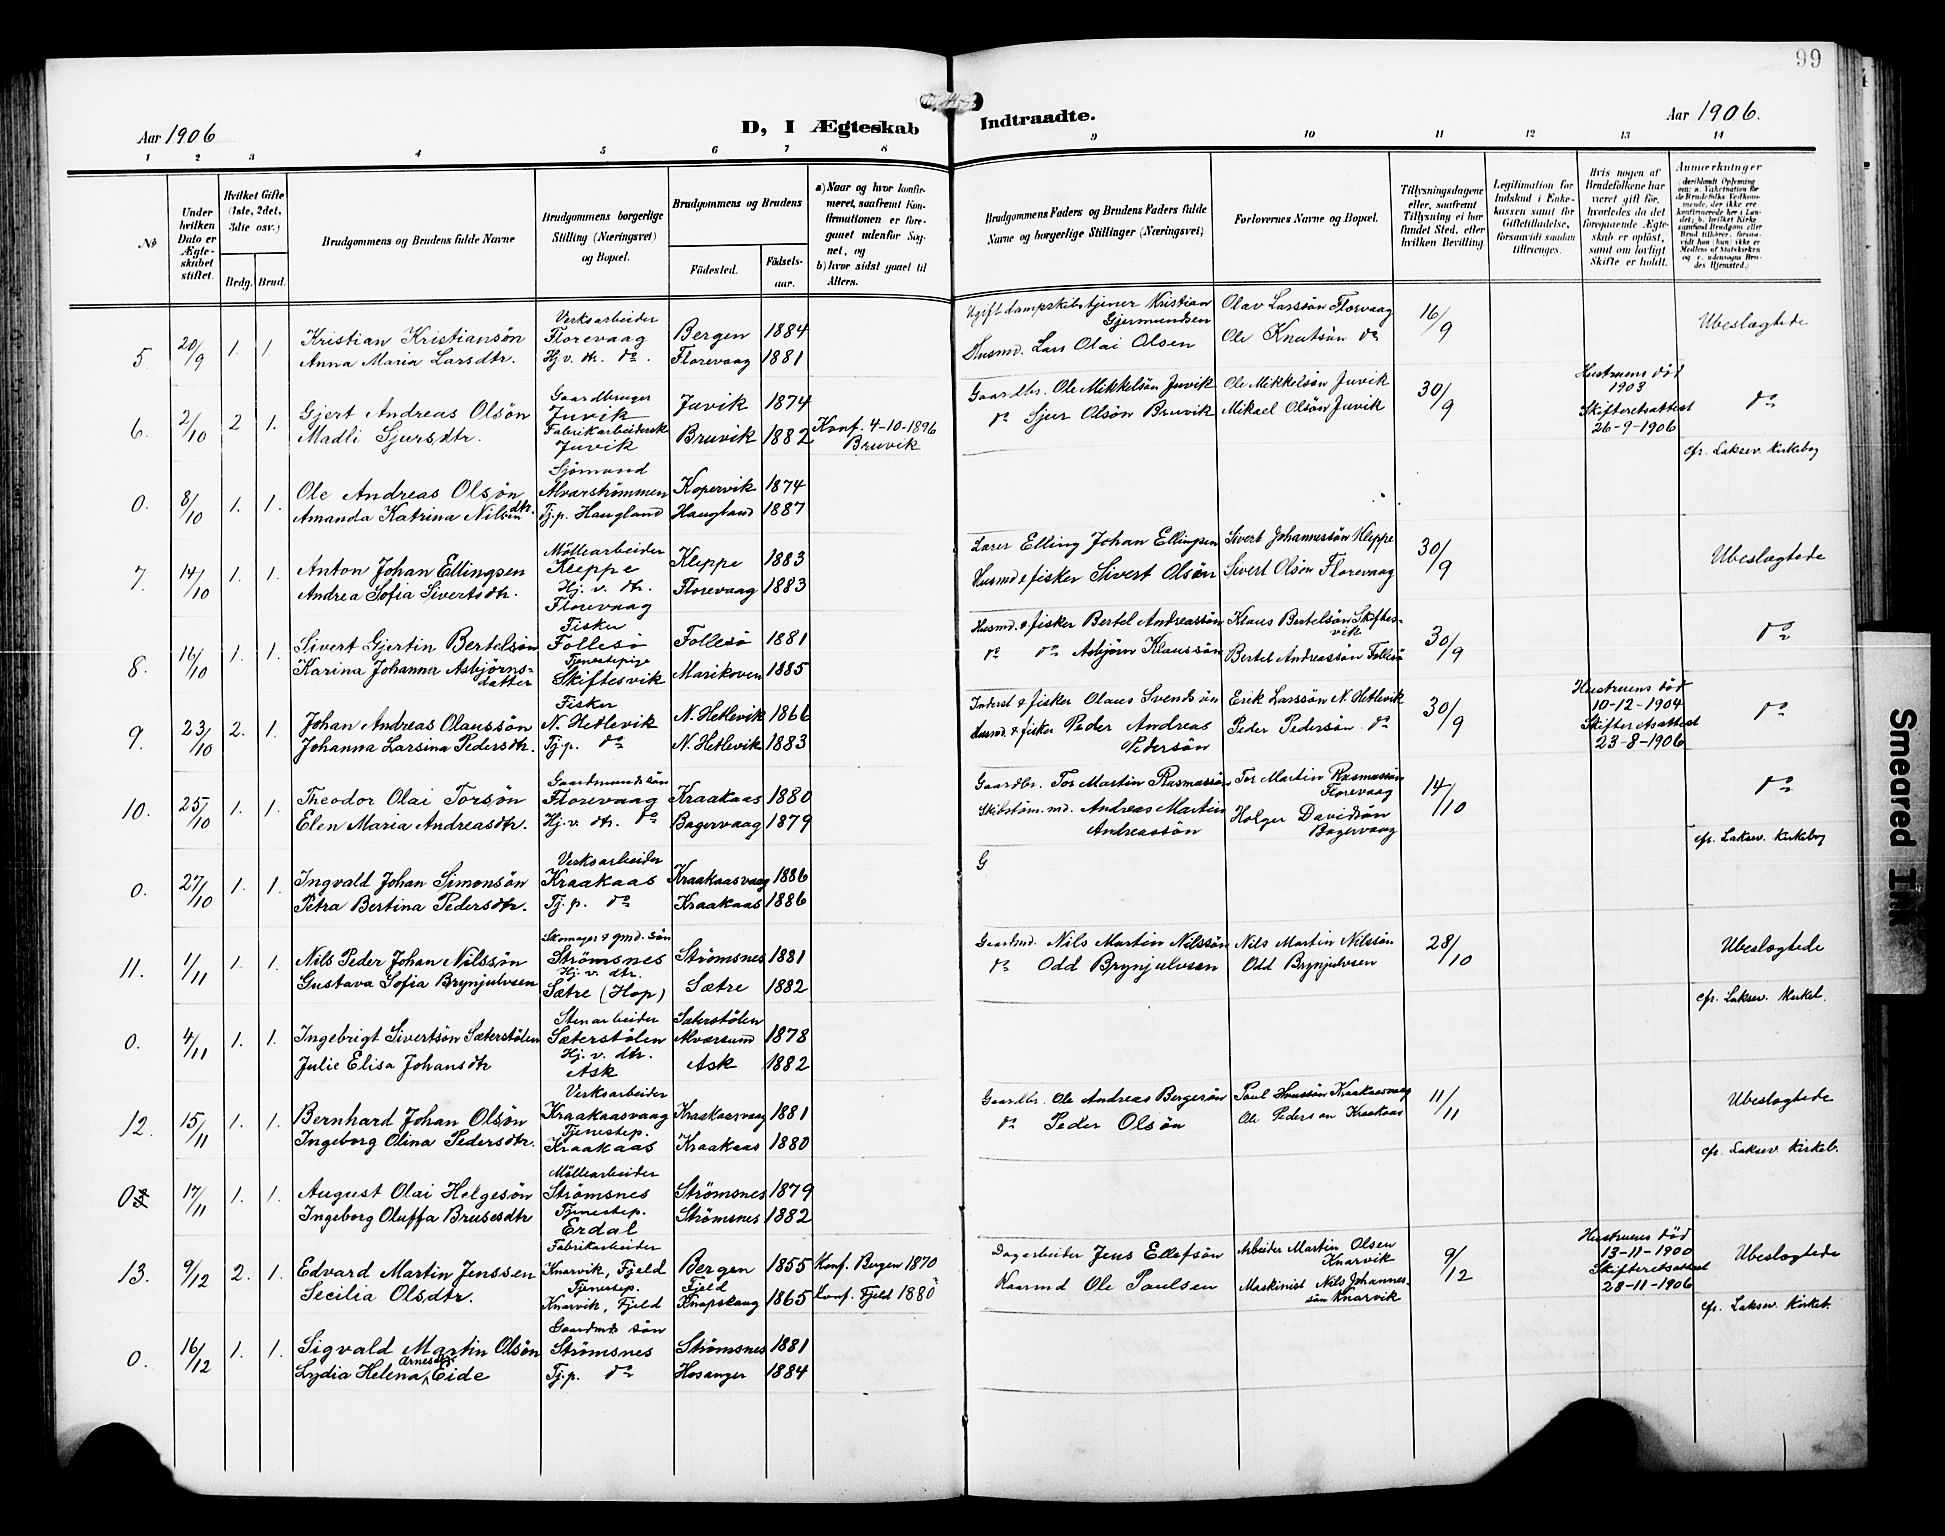 99
Aar 1906
D, I Ægteskab Indtraadte.
Aar 1906.
1 2 3 4 5 6 7 8 9 10 11 12 13 14
No
Under hvilken Dato er Ægteskabet stiftet.
Hvilket Gifte (1ste, 2det, 3die osv.)
Brdg. Brud.
Brudgommens og Brudens fulde Navne
Brudgommens borgerlige Stilling (Næringsvei) og Bopæl.
Brudgommens og Brudens
Födested.
Födselsaar.
a) Naar og hvor konfirmeret, saafremt Konfirmationen er foregaaet udenfor Sognet, og
b) hvor sidst gaaet til Alters.
Brudgommens Faders og Brudens Faders fulde Navne og borgerlige Stillinger (Næringsvei)
Forlovernes Navne og Bopæl.
Tillysningsdagene eller, saafremt Tillysning ei har fundet Sted, efter hvilken Bevilling
Legitimation for Indskud i Enkekassen samt for Giftetilladelse, forsaavidt saadan tiltrænges.
Hvis nogen af Brudefolkene har været gift før, hvorledes da det foregaaende Ægteskab er opløst, samt om lovligt Skifte er holdt.
Anmerkninger
5 20/9 1. 1.
Kristian Kristiansön Verksarbeider Florevaag Bergen 1884
Anna Maria Larsdtr. Hj. v. dtr. do. Florevaag 1881
Ugift dampskibstjener Kristian Gjermundsen Olav Larssön Florvaag 16/9 Ubeslægtede
Husmd. Lars Olai Olsen Ole Knutsön do
6. 2/10 2 1.
Gjert Andreas Olsön Gaardbruger Juvik Juvik 1874
Madli Sjursdtr. Fabrikarbeiderske Juvik Bruvik 1882 Konf. 4-10-1896 Bruvik
Gaardbr. Ole Mikkelsön Juvik Ole Mikkelsön Juvik 30/9 Hustruens död 1903 do
do Sjur Olsön Bruvik Mikael Olsön Juvik Skifteretsattest 26-9-1906
0. 8/10 1. 1.
Ole Andreas Olsön Sjömand Alværströmmen Kopervik 1874
Amanda Katrina Nilsendtr. Tj. p. Haugland Haugland 1887
cfr. Laksev. Kirkebog
7. 14/10 1. 1.
Anton Johan Ellingsen Möllearbeider Kleppe Kleppe 1883
Andrea Sofia Sivertsdtr. Hj. v. dtr. Florevaag Florevaag 1883
Lærer Elling Johan Ellingsen Sivert Johannessön Kleppe 30/9 Ubeslægtede
Husmd & fisker Sivert Olsön Sivert Olsön Florevaag
8. 16/10 1. 1.
Sivert Gjertin Bertelsön Fisker Follesö Follesö 1881
Karina Johanna Asbjörnsdatter Tjenestepige Skiftesvik Marikoven 1885
Husmd. & fisker Bertel Andreassön Klaus Bertelsön Skiftesvik 30/9 do
do do Asbjörn Klaussön Bertel Andreassön Follesö
9. 23/10 2. 1.
Johan Andreas Olaussön Fisker N. Hetlevik N. Hetlevik 1866
Johanna Larsina Pedersdtr. Tj. p. do N. Hetlevik 1883
Inderst & fisker Olaus Svendsön Erik Larssön N. Hetlevik 30/9 Hustruens död 10-12-1904 do
Husmd. & fisker Peder Andreas Pedersön Peder Pedersön do Skifteretsattest 23-8-1906
10. 25/10 1. 1.
Theodor Olai Torsön Gaardmandssön Florevaag Kraakaas 1880
Elen Maria Andreasdtr. Hj. v. dtr. do Bagervaag 1879
Gaardbr. Tor Martin Rasmussön Tor Martin Rasmussön Florevaag 14/10 do
Skibstöm. md. Andreas Martin Andreassön Holger Davidsön Bagervaag
0. 27/10 1. 1.
Ingvald Johan Simonsön Verksarbeider Kraakaas Kraakaasvaag 1886
Petra Bertina Pedersdtr. Tj. p. do Kraakaas 1886
G cfr. Laksev. Kirkebog
11. 1/11 1. 1.
Nils Peder Johan Nilssön Skomager & gmd. sön Strömsnes Strömsnes 1881
Gustava Sofia Brynjulvsen Hj. v. dtr. Sætre (Hop) Sætre 1882
Gaardmd. Nils Martin Nilssön Nils Martin Nilssön 28/10 Ubeslægtede
do Odd Brynjulvsen Odd Brynjulvsen
0. 4/11 1. 1.
Ingebrigt Sivertsön Sæterstölen Stenarbeider Sæterstölen Sæterstölen Alværsund 1878
Julie Elisa Johansdtr Hj. v. dtr. Ask Ask 1882
cfr. Laksev. Kirkeb.
12. 15/11 1. 1.
Bernhard Johan Olsön Verksarbeider Kraakaasvaag Kraakaasvaag 1881
Ingeborg Olina Pedersdtr. Tjenestep. Kraakaas Kraakaas 1880
Gaardbr. Ole Andreas Bergersön Paul Kraakaasvaag 11/11 Ubeslægtede
do Peder Olsön Ole Pedersen Kraakaas
0 17/11 1. 1.
August Olai Helgesön Möllearbeider Strömsnes Strömsnes 1879
Ingeborg Oluffa Brusesdtr Tjenestep. Erdal Strömsnes 1882
cfr. Laksev. Kirkeb.
13. 9/12 2. 1.
Edvard Martin Jenssen Fabrikarbeider Knarvik, Fjeld Bergen 1855 Konf. Bergen 1870
Secilia Olsdtr. Tjenestep. Knarvik, Fjeld Fjeld Knapskaug 1865 Konf. Fjeld 1880
Dagarbeider Jens Ellefsön Arbeider Martin Olsen Knarvik 9/12 Hustruens död 13-11-1900 Ubeslægtede
Kaarmd Ole Paulsen Maskinist Nils Johannessön Knarvik Skifteretsattest 28-11-1906
0. 16/12 1. 1.
Sigvald Martin Olsön Gaardmds sön Strömsnes Strömsnes 1881
Lydia Helena Arnesdtr Eide Tj. p. do Hosanger 1884
cfr. Laksev. Kirkeb.
Smeared Ink